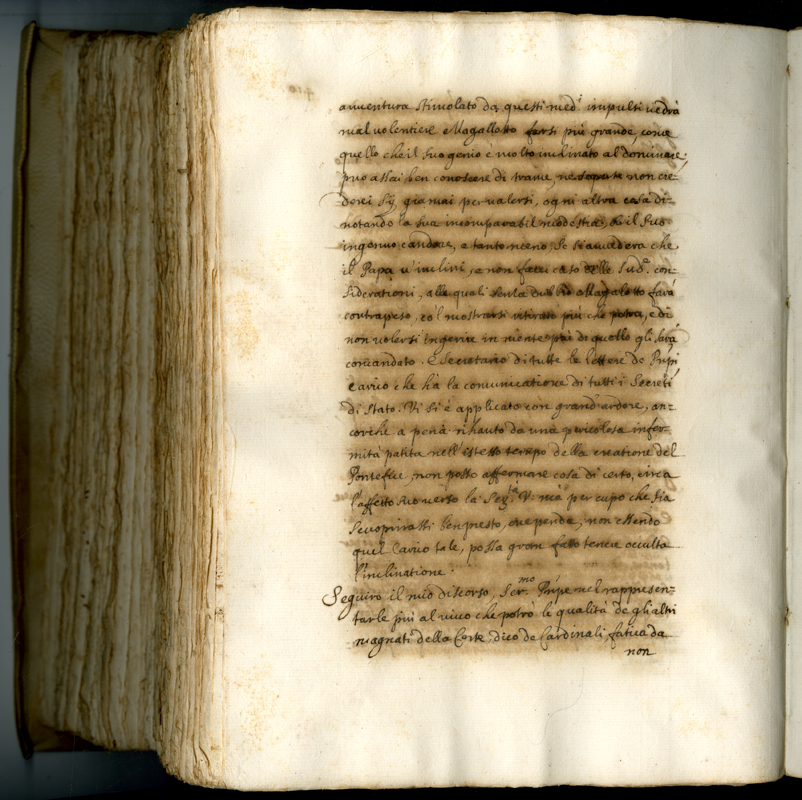 auuentura stimolato da questi med.i impulsi uedrà
mal uolentieri Magallotto farsi più grande, come
quello che il suo genio è molto inclinato al dominare,
può assai ben conoscere di trame, ne saperte non cre-
derei Sij giamai per ualersi, ogni altra cosa di-
notando la sua incomparabil modestia, et il suo
ingenuo candore, e tanto meno, se s'auuederà che
il Papa u'inclini, e non facci caso delle sud.e con-
siderationi, alle quali senza dubbio Magalotto farà
contrapeso, co'l mostrarsi ritirato più che potrà, e di
non uolersi ingerire in niente più di quello gli sarà
comandato. È Secretario di tutte le lettere de Prpi
carico che hà la comunicatione di tutti i Secreti
di stato. Vi si è applicato con grand'ardore, an-
corche a pena rihauto da una pericolosa infer-
mità patita nell'istesso tempo della creatione del
Pontefice, non posso affermare cosa di certo, circa
l'affetto suo uerso la Ser.tà V. ma per cupo che sia
scuoprirassi ben presto, oue penda, non essendo
quel carico tale, possa gran fatto tenere occulta
l'inclinatione.
Seguirò il mio discorso, Ser.mo Prpe nel rappresen-
tarle più al uiuo che potrò le qualità de gli altri
magnati della Corte, dico de Cardinali, fatica da
non